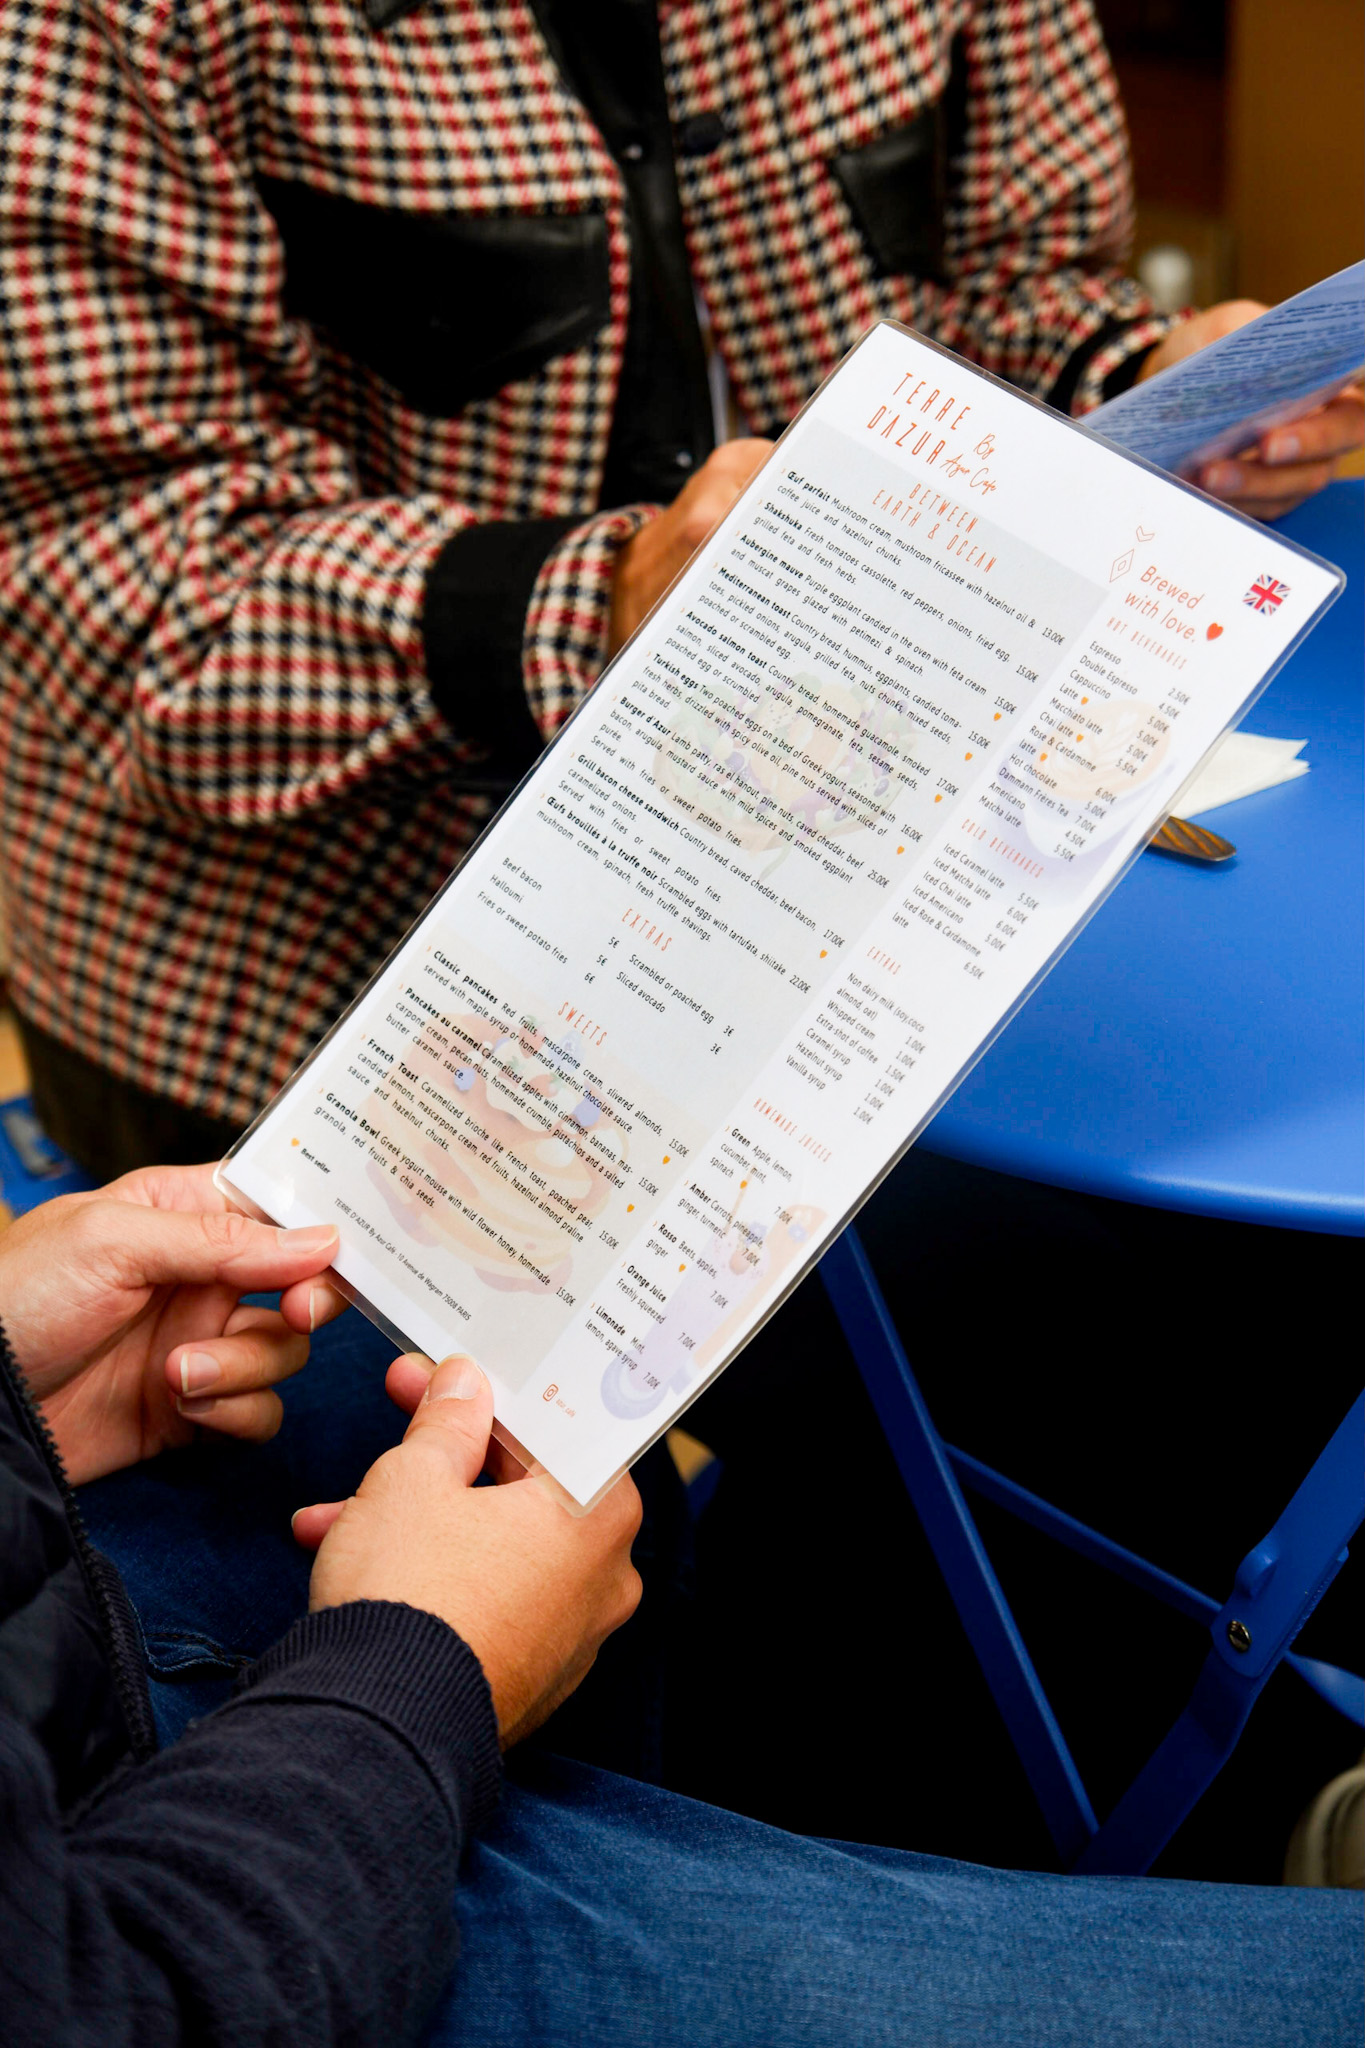 TERRE
D'AZUR
By
Azur Cafe
BETWEEN
EARTH & OCEAN
› Œuf parfait Mushroom cream, mushroom fricassee with hazelnut oil &
coffee juice and hazelnut chunks. 13.00€
› Shakshuka Fresh tomatoes cassolette, red peppers, onions, fried egg,
grilled feta and fresh herbs. 15.00€
› Aubergine mauve Purple eggplant candied in the oven with feta cream
and muscat grapes glazed with petimezi & spinach. 15.00€
› Mediterranean toast Country bread, hummus, eggplants, candied toma-
toes, pickled onions, arugula, grilled feta, nuts chunks, mixed seeds,
poached or scrambled egg. 15.00€
› Avocado salmon toast Country bread, homemade guacamole, smoked
salmon, sliced avocado, arugula, pomegranate, feta, sesame seeds,
poached egg or scrumbled 17.00€
› Turkish eggs Two poached eggs on a bed of Greek yogurt, seasoned with
fresh herbs, drizzled with spicy olive oil, pine nuts served with slices of
pita bread. 16.00€
› Burger d'Azur Lamb patty, ras el hanout, pine nuts, caved cheddar, beef
bacon, arugula, mustard sauce with mild spices and smoked eggplant
purée.
Served with fries or sweet potato fries. 25.00€
› Grill bacon cheese sandwich Country bread, caved cheddar, beef bacon,
caramelized onions.
Served with fries or sweet potato fries. 17.00€
› Œufs brouillés à la truffe noir Scrambled eggs with tartufata, shiitake
mushroom cream, spinach, fresh truffle shavings. 22.00€
EXTRAS
Beef bacon 5€
Halloumi 5€
Fries or sweet potato fries 6€
Scrambled or poached egg 3€
Sliced avocado 3€
SWEETS
› Classic pancakes Red fruits, mascarpone cream, slivered almonds,
served with maple syrup or homemade hazelnut chocolate sauce. 15.00€
› Pancakes au caramel Caramelized apples with cinnamon, bananas, mas-
carpone cream, pecan nuts, homemade crumble, pistachios and a salted
butter caramel sauce. 15.00€
› French Toast Caramelized brioche like French toast, poached pear,
candied lemons, mascarpone cream, red fruits, hazelnut almond praline
sauce and hazelnut chunks. 15.00€
› Granola Bowl Greek yogurt mouse with wild flower honey, homemade
granola, red fruits & chia seeds. 15.00€
Best seller
TERRE D'AZUR By Azur Café - 10 Avenue de Wagram 75008 PARIS
Brewed
with love.
HOT BEVERAGES
Espresso 2.50€
Double Espresso 4.50€
Cappuccino 5.00€
Latte 5.00€
Macchiato latte 5.00€
Chai latte 5.50€
Rose & Cardamome
latte 6.00€
Hot chocolate 5.00€
Dammann Frères Tea 7.00€
Americano 4.50€
Matcha latte 5.50€
COLD BEVERAGES
Iced Caramel latte 5.50€
Iced Matcha latte 6.00€
Iced Chai latte 6.00€
Iced Americano 5.00€
Iced Rose & Cardamome
latte 6.50€
EXTRAS
Non dairy milk (soy,coco
almond, oat) 1.00€
Whipped cream 1.00€
Extra shot of coffee 1.50€
Caramel syrup 1.00€
Hazelnut syrup 1.00€
Vanilla syrup 1.00€
HOMEMADE JUICES
› Green Apple, lemon,
cucumber, mint,
spinach 7.00€
› Amber Carrots, pineapple,
ginger, turmeric 7.00€
› Rosso Beets, apples,
ginger 7.00€
› Orange Juice
Freshly squeezed 7.00€
› Limonade Mint,
lemon, agave syrup 7.00€